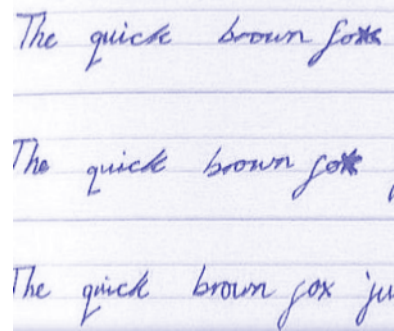 The quick brown fox
The quick brown fox
The quick brown fox ju